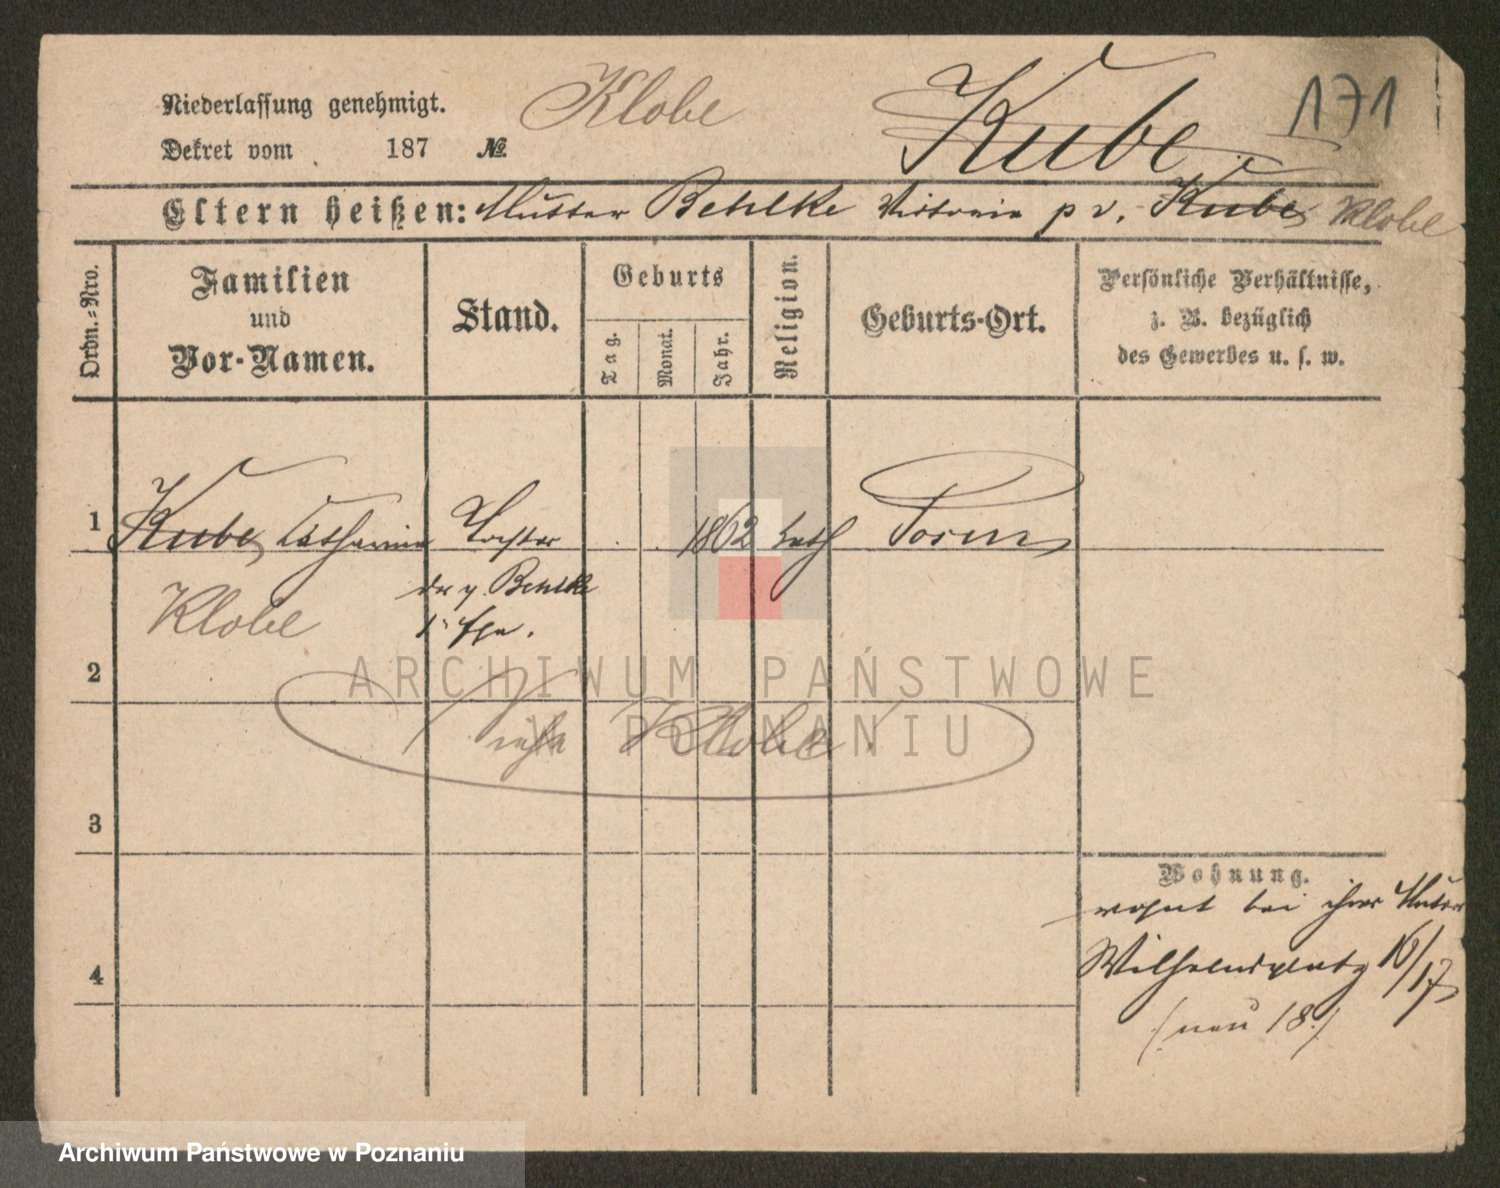 Niederlassung genehmigt. Klobe Kube 171
Dekret vom 187 №
Eltern heißen: Mutter Behlke Victoria p v. Kube Klobe
Ordn.-Nro.
Familien und Vor-Namen.
Stand.
Geburts
Tag.
Monat.
Jahr.
Religion.
Geburts-Ort.
Persönliche Verhältnisse,
z. B. bezüglich
des Gewerbes u. s. w.
1 Kube Catharina Tochter 1862 kath Posen
der p. Behlke
Klobe 1r Ehe.
2
ARCHIWUM PAŃSTWOWE
W POZNANIU
Siehe Klobe
3
Wohnung.
wohnt bei ihrer Mutter
4 Wilhelmsplatz 16/17
(neu 18.)
Archiwum Państwowe w Poznaniu